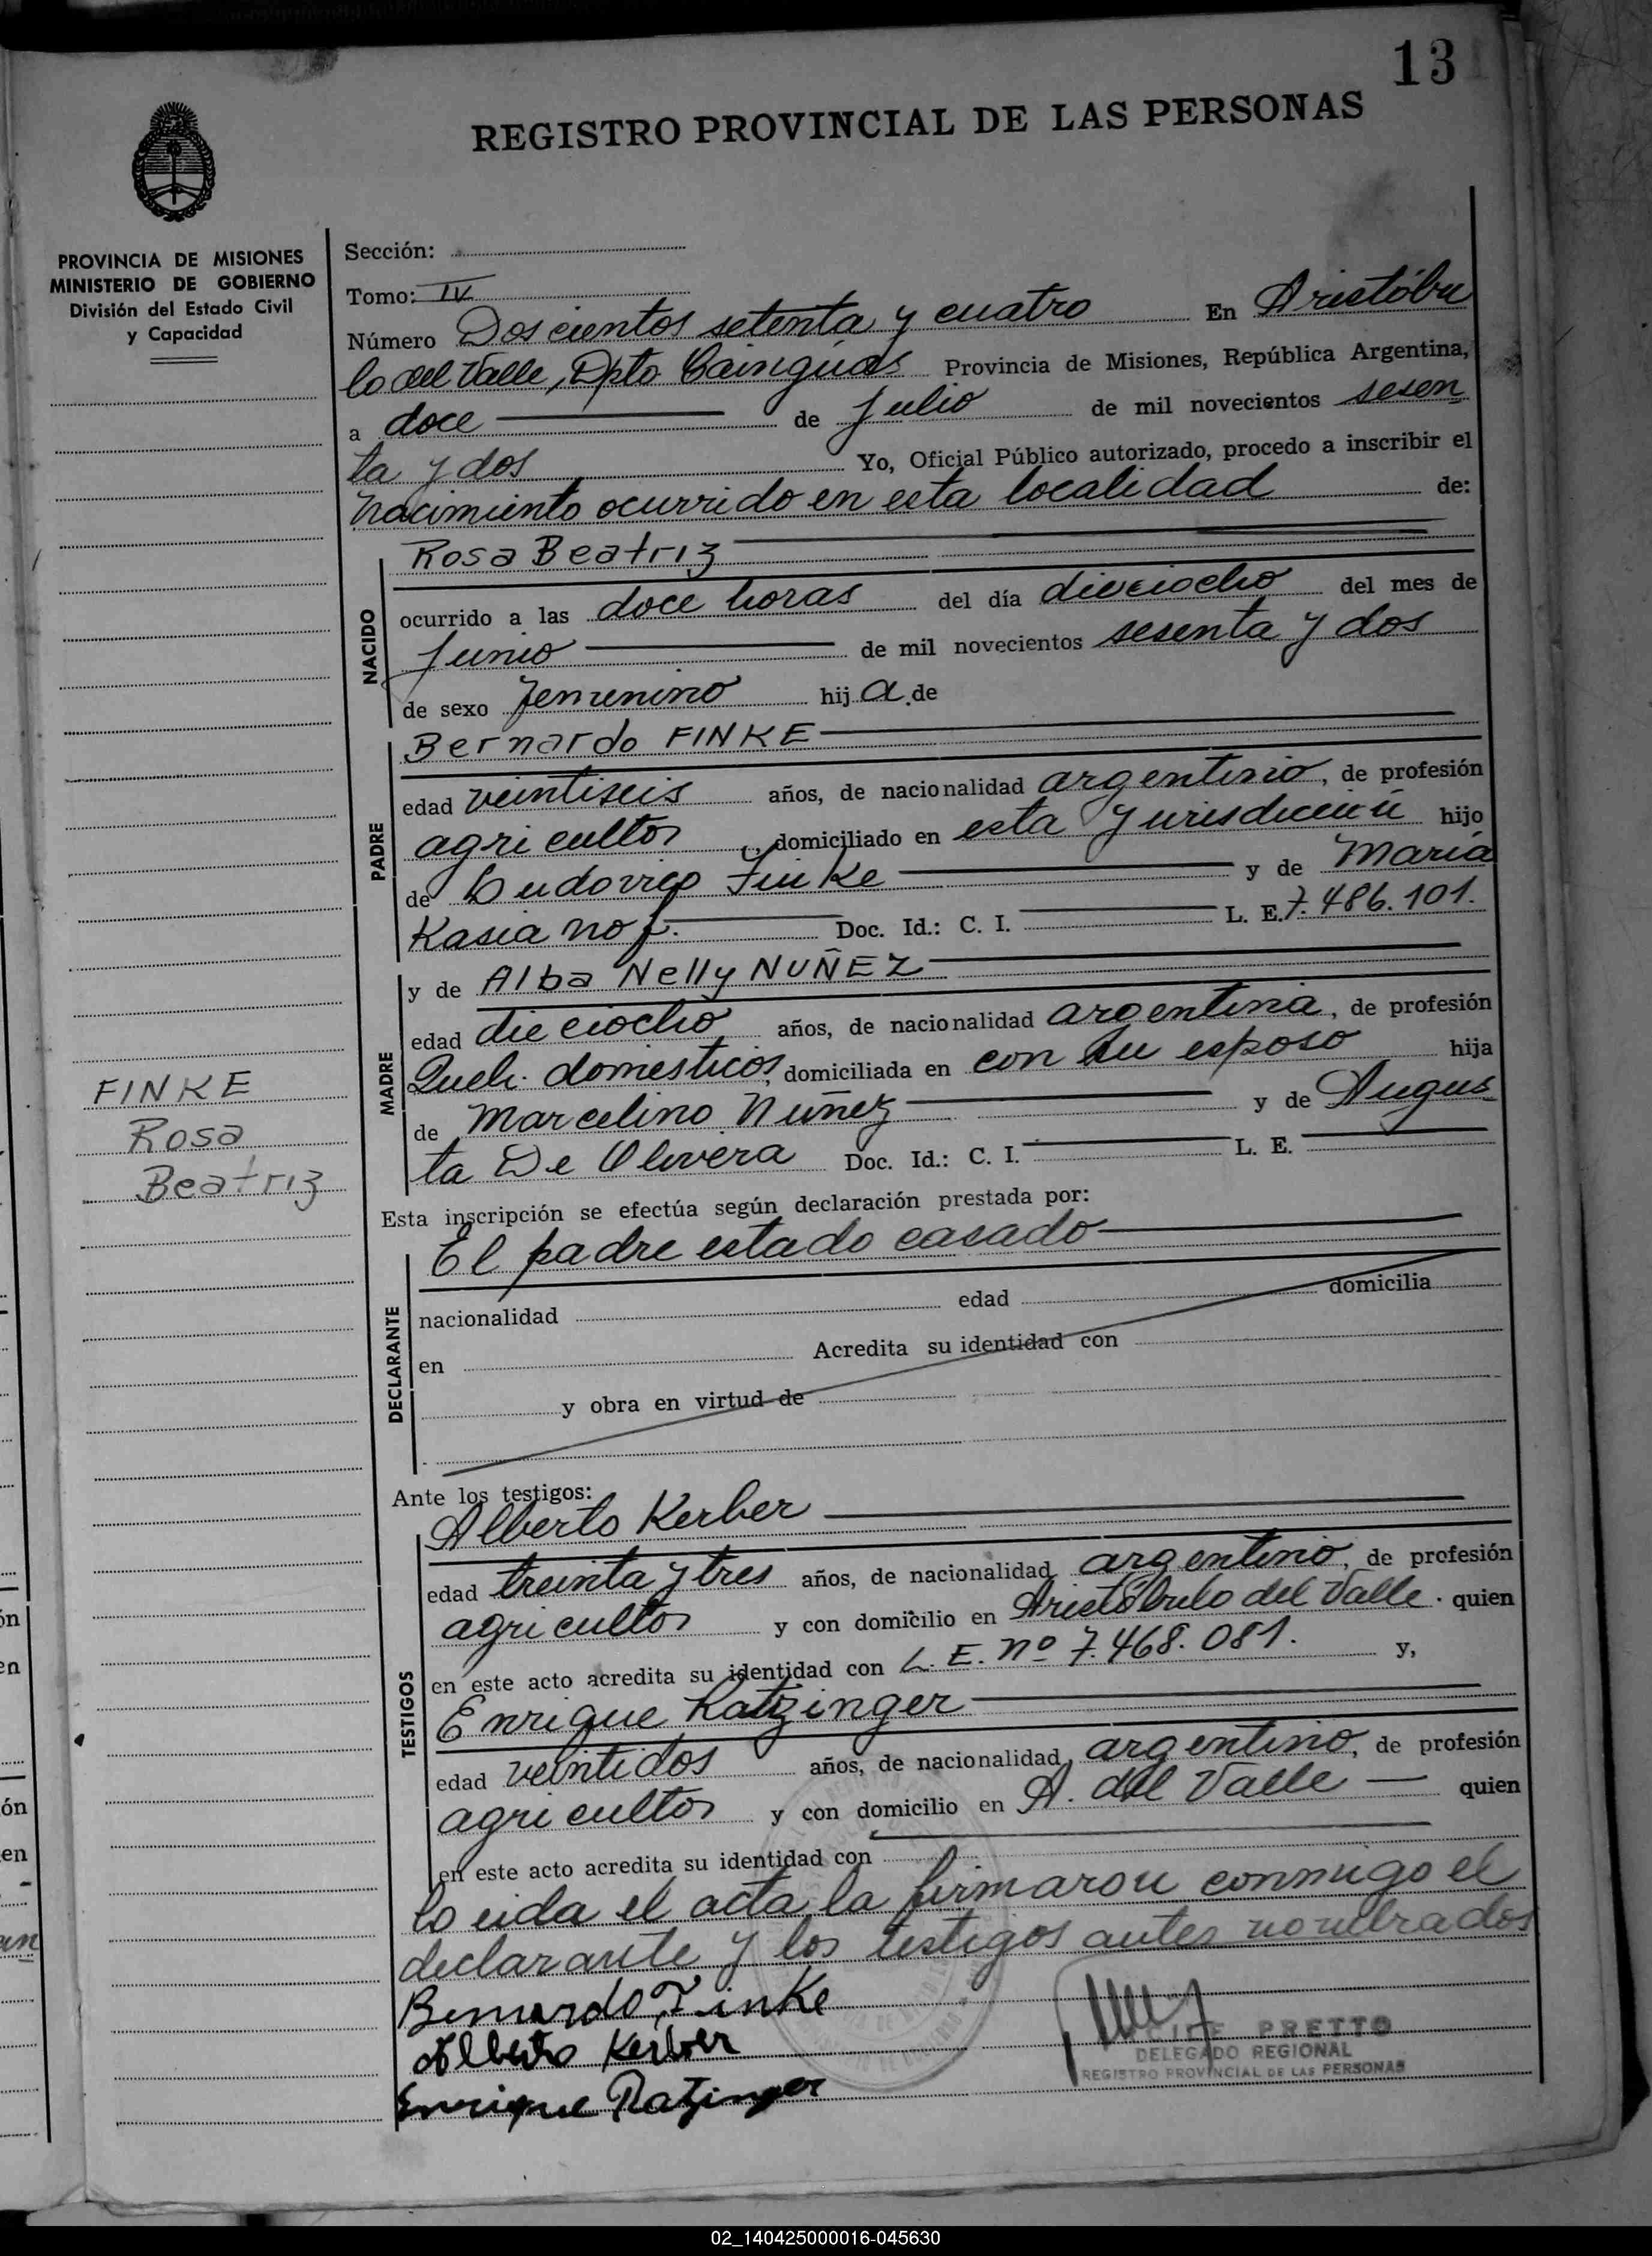 13
REGISTRO PROVINCIAL DE LAS PERSONAS
PROVINCIA DE MISIONES
MINISTERIO DE GOBIERNO
División del Estado Civil
y Capacidad
FINKE
Rosa
Beatriz
Sección:
Tomo: IV
Número Doscientos setenta y cuatro En Aristóbu
lo del Valle, Dpto Cainguás Provincia de Misiones, República Argentina,
a doce de Julio de mil novecientos sesen
ta y dos Yo, Oficial Público autorizado, procedo a inscribir el
nacimiento ocurrido en esta localidad de:
NACIDO
Rosa Beatriz
ocurrido a las doce horas del día dieciocho del mes de
Junio de mil novecientos sesenta y dos
de sexo femenino hij a de
PADRE
Bernardo FINKE
edad veintiseis años, de nacionalidad argentino, de profesión
agricultor, domiciliado en esta jurisdicción hijo
de Ludovico Finke y de María
Kasianof. Doc. Id.: C. I. L. E. 7.486.101.
MADRE
y de Alba Nelly NUÑEZ
edad dieciocho años, de nacionalidad argentina, de profesión
Queh. domesticos, domiciliada en con su esposo hija
de Marcelino Nuñez y de Augus
ta De Olivera Doc. Id.: C. I. L. E.
Esta inscripción se efectúa según declaración prestada por:
DECLARANTE
El padre estado casado
nacionalidad edad domicilia
en Acredita su identidad con
y obra en virtud de
Ante los testigos:
TESTIGOS
Alberto Kerber
edad treinta y tres años, de nacionalidad argentino, de profesión
agricultor y con domicilio en Aristóbulo del Valle. quien
en este acto acredita su identidad con L. E. nº 7.468.081. y,
Enrique Ratzinger
edad veintidos años, de nacionalidad argentino, de profesión
agricultor y con domicilio en A. del Valle quien
en este acto acredita su identidad con
Leida el acta, la firmaron conmigo el
declarante y los testigos antes nombrados
Bernardo Finke
Alberto Kerber
Enrique Ratzinger
PRETTO
DELEGADO REGIONAL
REGISTRO PROVINCIAL DE LAS PERSONAS
02_140425000016-045630